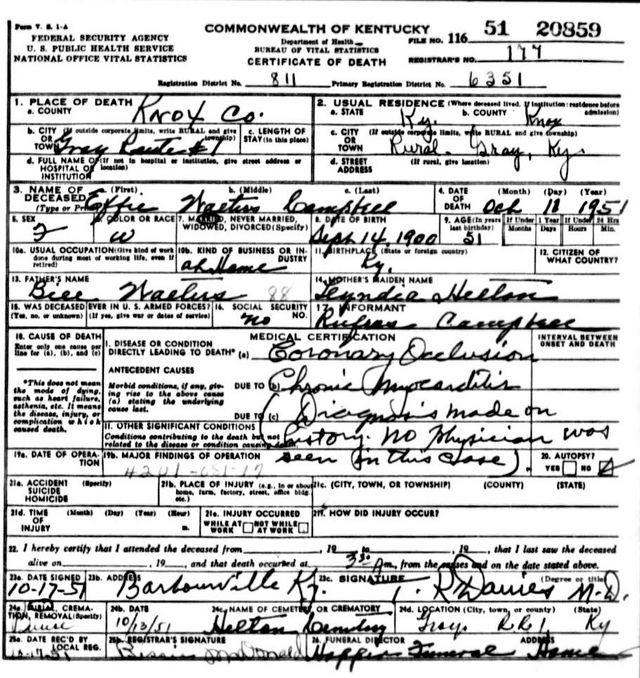 Form V. S. 1-A
FEDERAL SECURITY AGENCY
U. S. PUBLIC HEALTH SERVICE
NATIONAL OFFICE VITAL STATISTICS
COMMONWEALTH OF KENTUCKY
Department of Health
BUREAU OF VITAL STATISTICS
CERTIFICATE OF DEATH
FILE NO. 116 51 20859
REGISTRAR'S NO. 177
Registration District No. 811 Primary Registration District No. 6351
1. PLACE OF DEATH
a. COUNTY Knox Co.
2. USUAL RESIDENCE (Where deceased lived. If institution: residence before admission)
a. STATE Ky. b. COUNTY Knox
b. CITY (If outside corporate limits, write RURAL and give township)
OR
TOWN Gray Route #1
c. LENGTH OF STAY (in this place)
c. CITY (If outside corporate limits, write RURAL and give township)
OR
TOWN Rural. Gray, Ky.
d. FULL NAME OF (If not in hospital or institution, give street address or location)
HOSPITAL OR
INSTITUTION
d. STREET (If rural, give location)
ADDRESS
3. NAME OF DECEASED (Type or Print)
a. (First) b. (Middle) c. (Last)
Effie Campbell
4. DATE OF DEATH (Month) (Day) (Year)
Oct 1951
5. SEX
F
6. COLOR OR RACE
W
7. MARRIED, NEVER MARRIED, WIDOWED, DIVORCED (Specify)
8. DATE OF BIRTH
Sept. 14, 1900
9. AGE (In years last birthday)
51
If Under 1 Year
Months Days
If Under 24 Hrs
Hours Min.
10a. USUAL OCCUPATION (Give kind of work done during most of working life, even if retired)
10b. KIND OF BUSINESS OR INDUSTRY
at Home
11. BIRTHPLACE (State or foreign country)
Ky.
12. CITIZEN OF WHAT COUNTRY?
13. FATHER'S NAME
88
14. MOTHER'S MAIDEN NAME
Helton
15. WAS DECEASED EVER IN U. S. ARMED FORCES?
(Yes, no, or unknown) (If yes, give war or dates of service)
16. SOCIAL SECURITY NO.
No
17. INFORMANT
Rufus Campbell
18. CAUSE OF DEATH
Enter only one cause per line for (a), (b), and (c)
*This does not mean the mode of dying, such as heart failure, asthenia, etc. It means the disease, injury, or complication which caused death.
MEDICAL CERTIFICATION
INTERVAL BETWEEN ONSET AND DEATH
I. DISEASE OR CONDITION
DIRECTLY LEADING TO DEATH* (a) Coronary Occlusion
ANTECEDENT CAUSES
Morbid conditions, if any, giving rise to the above cause (a) stating the underlying cause last.
DUE TO (b) Chronic Myocarditis
DUE TO (c) (Diagnosis made on
II. OTHER SIGNIFICANT CONDITIONS
Conditions contributing to the death but not related to the disease or condition causing death.
history. No Physician was
seen (in this case)
19a. DATE OF OPERATION
19b. MAJOR FINDINGS OF OPERATION
20. AUTOPSY?
YES NO
21a. ACCIDENT (Specify)
SUICIDE
HOMICIDE
21b. PLACE OF INJURY (e.g., in or about home, farm, factory, street, office bldg. etc.)
21c. (CITY, TOWN, OR TOWNSHIP) (COUNTY) (STATE)
21d. TIME OF INJURY (Month) (Day) (Year) (Hour)
m.
21e. INJURY OCCURRED
WHILE AT WORK NOT WHILE AT WORK
21f. HOW DID INJURY OCCUR?
22. I hereby certify that I attended the deceased from , 19 to , 19 , that I last saw the deceased
alive on , 19 , and that death occurred at 3:30 Am., from the causes and on the date stated above.
23a. DATE SIGNED
10-17-51
23b. ADDRESS
Barbourville Ky.
23c. SIGNATURE (Degree or title)
Davies M.D.
24a. BURIAL, CREMATION, REMOVAL (Specify)
24b. DATE
10/13/51
24c. NAME OF CEMETERY OR CREMATORY
Helton Cemetery
24d. LOCATION (City, town, or county) (State)
Gray R.R.1 Ky
25a. DATE REC'D BY LOCAL REG.
25b. REGISTRAR'S SIGNATURE
Bessie McDonald
26. FUNERAL DIRECTOR ADDRESS
Hopper Funeral Home